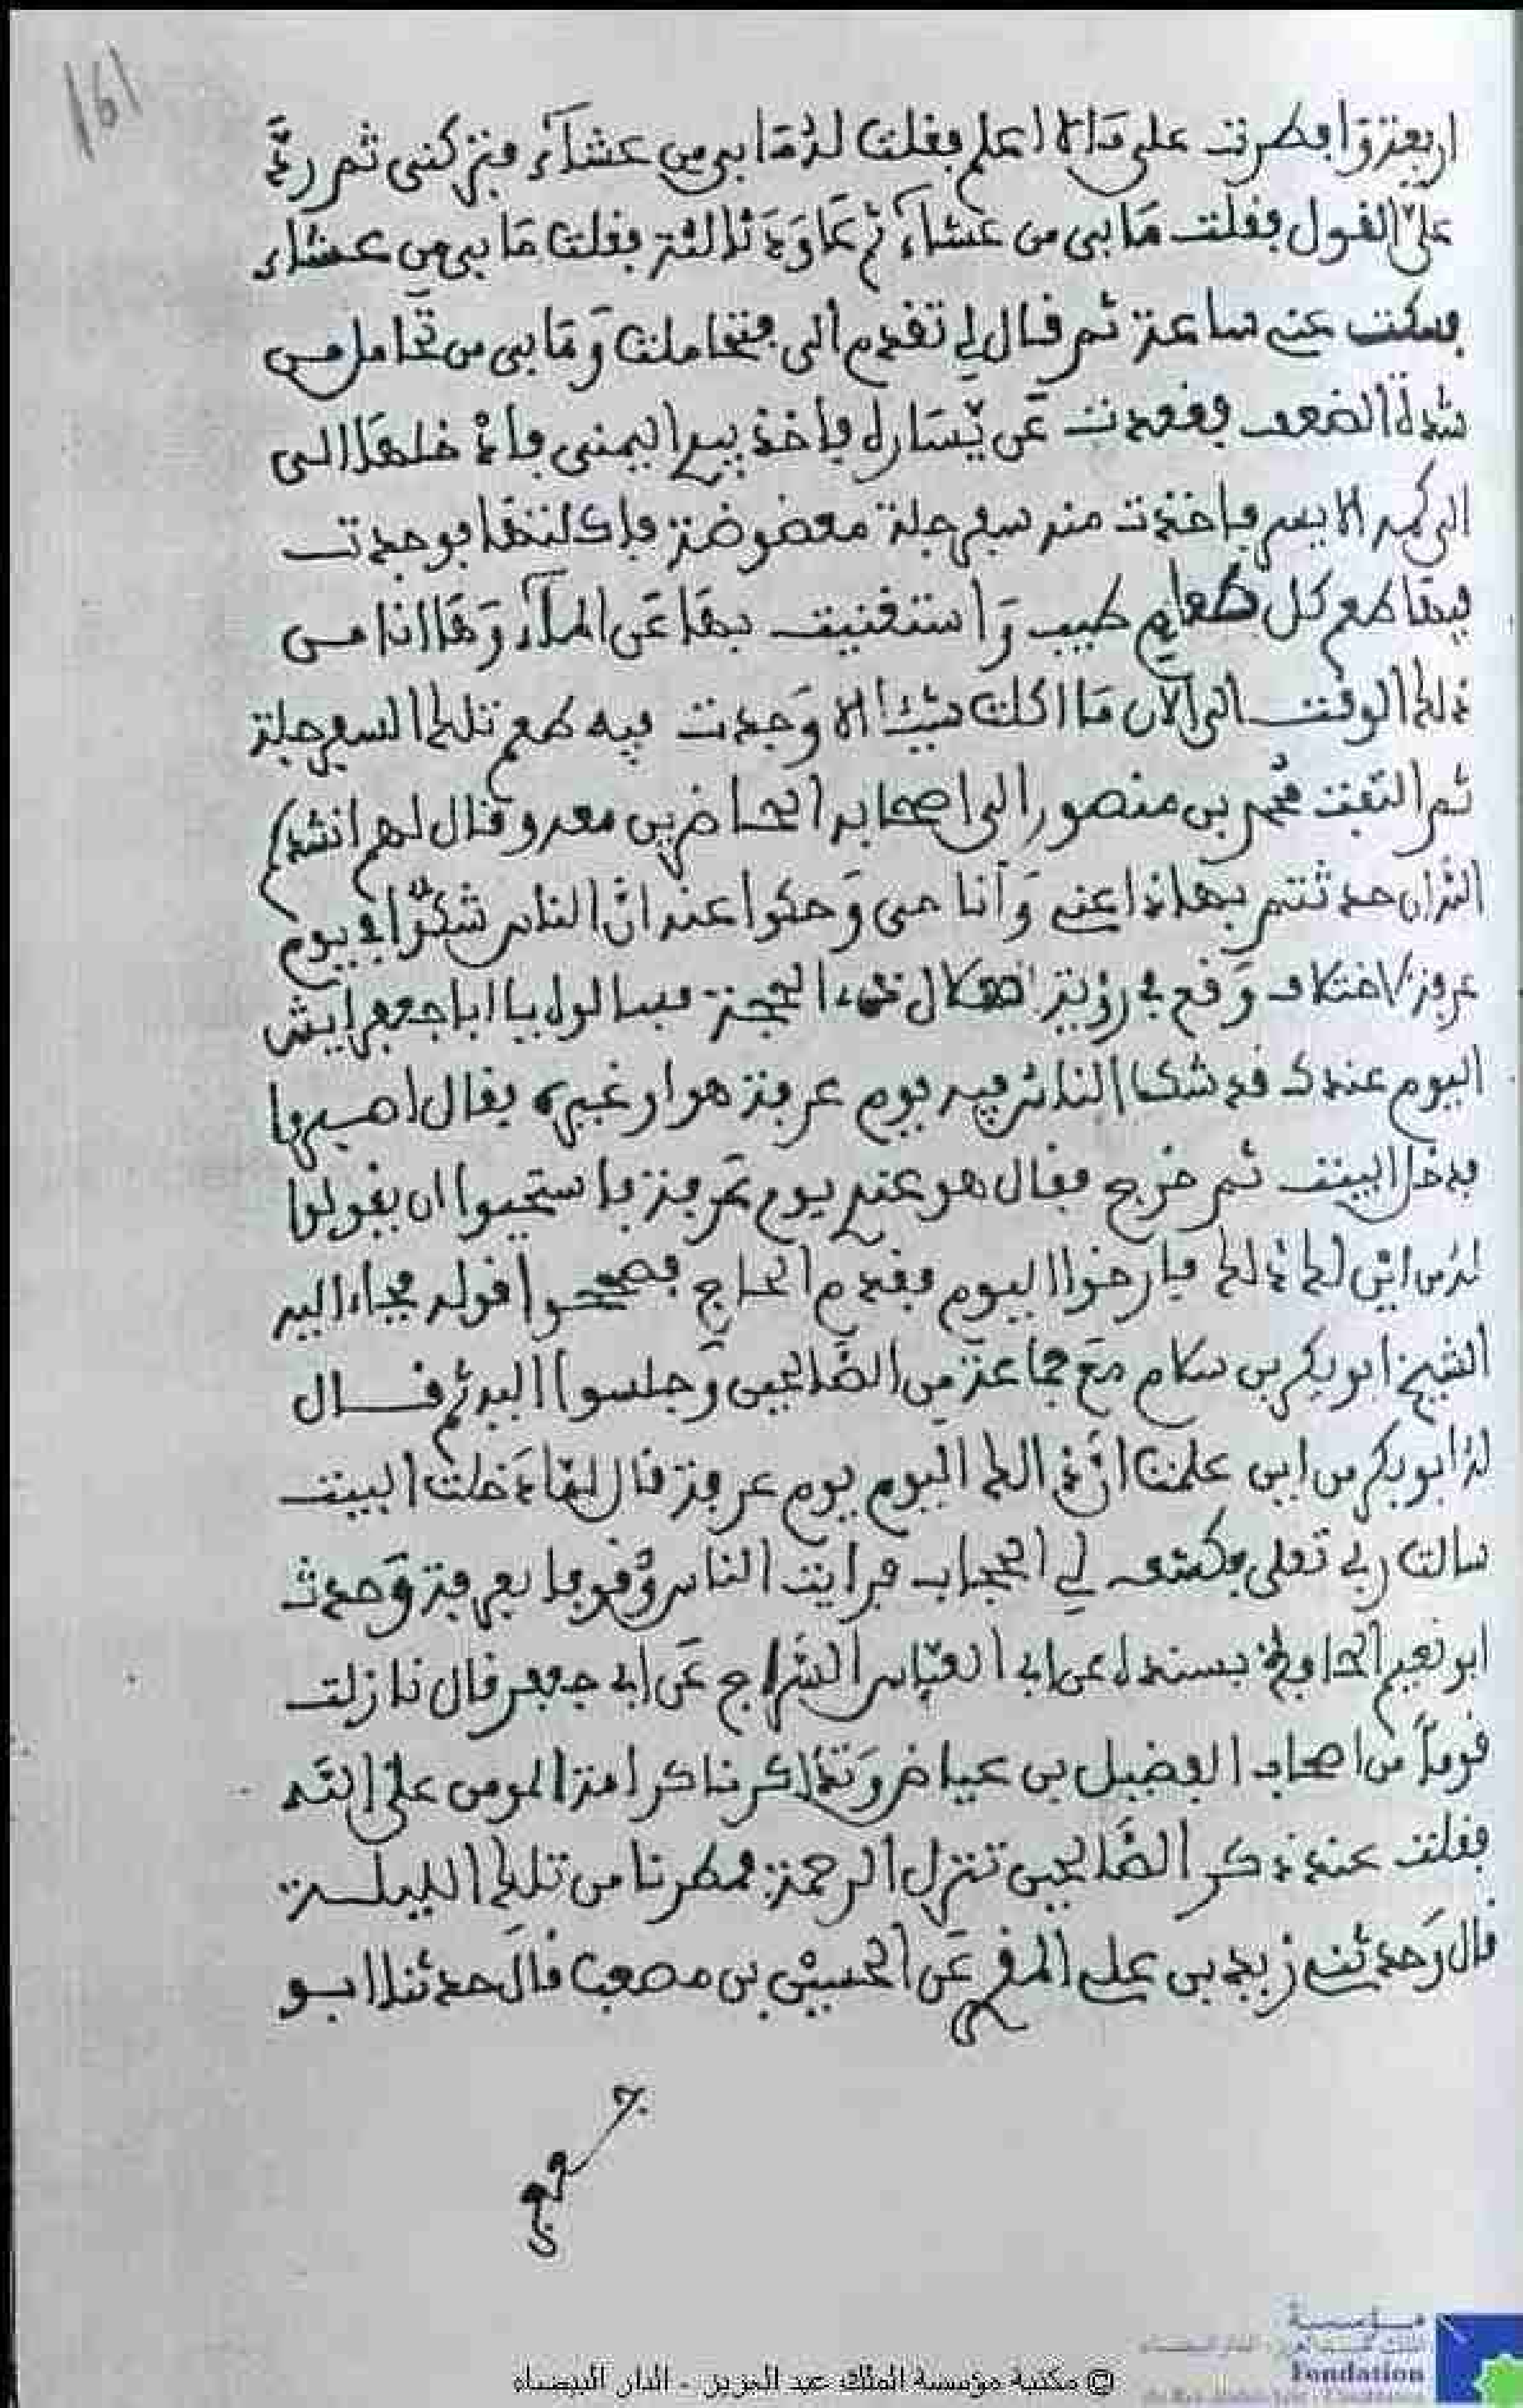 161
اربعة وافطرت على ما لا اعلم فقلت له ما بي من عشاء فتركني ثم رد
علي القول فقلت ما بي من عشاء ثم عاود ثالثة فقلت ما بي من عشاء
فسكت عني ساعة ثم قال لي تقدم الي فتحاملت وما بي من تحامل من
شدة الضعف فقعدت عن يساره فاخذ بيدي اليمنى فادخلها الى
الى كمه الايسر فاخذت منه سفرجلة معضوضة فاكلتها فوجدت
فيها طعم كل طعام طيب واستغنيت بها عن الماء وها انا من
ذلك الوقت الى الان ما اكلت شيئا الا وجدت فيه طعم تلك السفرجلة
ثم التفت محمد بن منصور الى اصحابه الحاضرين معه وقال لهم انشدكم
الله ان حدثتم بهاذا عني وانا حي وحكوا عنه ان الناس شكوا في يوم
عرفة لاختلاف وقع في رؤية هلال الحجة فسالوه يا ابا جعفر ايش
اليوم عندك قد شك الناس فيه يوم عرفة هو او غيره فقال اصبروا
فدخل البيت ثم خرج فقال هو عندي يوم عرفة فاستحيوا ان يقولوا
له من اين لك ذلك فارخوا اليوم فقدم الحاج فصححوا قوله فجاء اليه
الشيخ ابو بكر بن سلام مع جماعة من الصالحين وجلسوا اليه ثم قال
له ابو بكر من اين علمت ان ذالك اليوم يوم عرفة قال لما دخلت البيت
سالت ربي تعلى فكشف لي الحجاب فرايت الناس وقوفا بعرفة وحدث
ابو نعيم الحافظ بسنده عن ابي العباس السراج عن ابي جعفر قال نازلت
قوما من اصحاب الفضيل بن عياض وتذاكرنا كرامة المومن على الله
فقلت عند ذكر الصالحين تنزل الرحمة فمطرنا من تلك الليلة
قال وحدثني زيد بن علي المقري عن الحسين بن مصعب قال حدثنا ابو
© مكتبة مؤسسة الملك عبد العزيز - الدار البيضاء
مؤسسة
Fondation